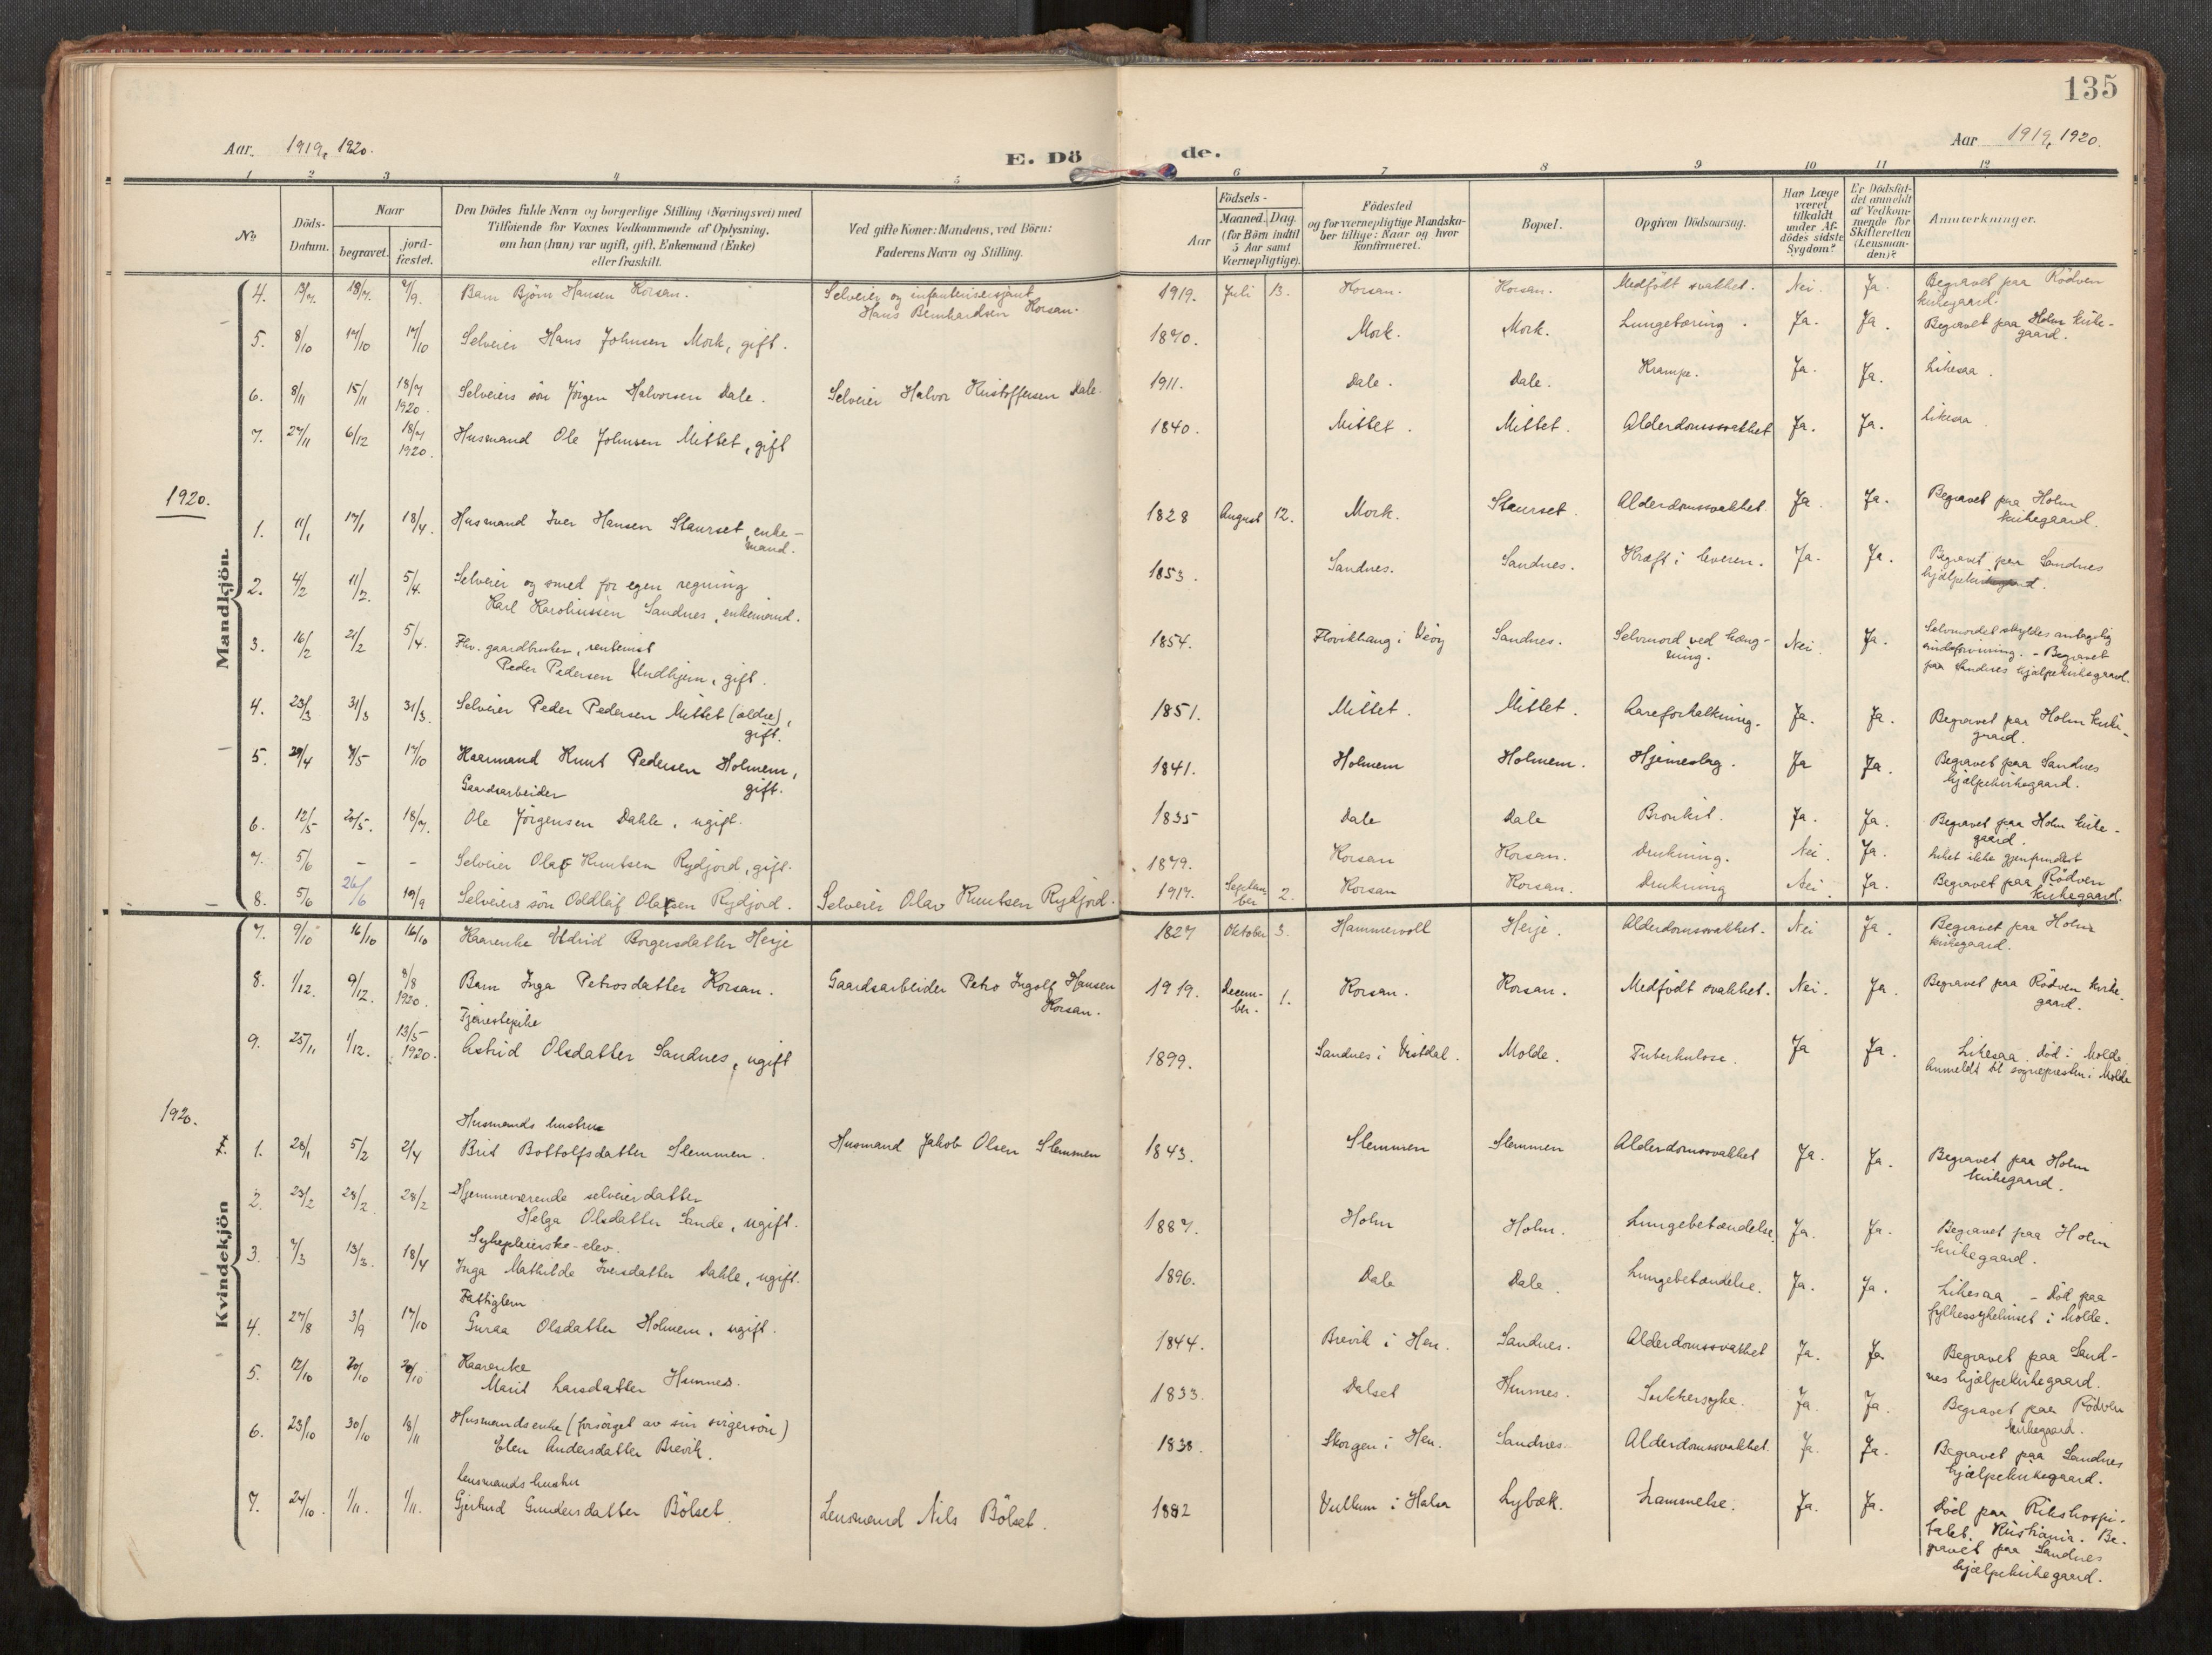 135
Aar. 1919, 1920.
E. Dö
de.
Aar 1919, 1920.
1 2 3 4 5 6 7 8 9 10 11 12
No
Döds-
Datum.
Naar
begravet.
jord-
fæstet.
Den Dödes fulde Navn og borgerlige Stilling (Næringsvei) med
Tilföiende for Voxnes Vedkommende af Oplysning,
om han (hun) var ugift, gift, Enkemand (Enke)
eller fraskilt.
Ved gifte Koner: Mandens, ved Börn:
Faderens Navn og Stilling.
Aar
Födsels-
Maaned. Dag.
(for Börn indtil
5 Aar samt
Værnepligtige).
Födested
og for værnepligtige Mandska-
ber tillige: Naar og hvor
konfirmeret.
Bopæl.
Opgiven Dödsaarsag.
Har Læge
været
tilkaldt
under Af-
dödes sidste
Sygdom?
Er Dödsfal-
det anmeldt
af Vedkom-
mende for
Skifteretten
(Lensman-
den)?
Anmærkninger.
Mandkjön
4. 13/7 18/7 7/9. Barn Björn Hansen Korsan. Selveier og infanterisersjant 1919. Juli 13. Korsan. Korsan. Medfödt svakhet. Nei. Ja. Begravet paa Rödven
Hans Bernhardsen Korsan. kirkegaard.
5. 8/10 17/10 17/10 Selveier Hans Johnsen Mork, gift. 1870. Mork. Mork. Lungetæring. Ja. Ja. Begravet paa Holm kirke-
gaard.
6. 8/11 15/11 18/7 Selveiers sön Jörgen Halvorsen Dale. Selveier Halvor Kristoffersen Dale. 1911. Dale. Dale. Krampe. Ja. Ja. Likesaa.
1920.
7. 27/11 6/12 18/7 Husmand Ole Johnsen Mittet, gift 1840. Mittet. Mittet. Alderdomssvakhet Ja. Ja. Likesaa
1920.
1920.
1. 11/1 17/1 18/4. Husmand Iver Hansen Staurset, enke- 1828 August 12. Mork. Staurset. Alderdomssvakhet. Ja Ja. Begravet paa Holm
mand. kirkegaard.
2. 4/2 11/2. 5/4. Selveier og smed for egen regning 1853. Sandnes. Sandnes. Kræft i leveren. Ja. Ja. Begravet paa Sandnes
Karl Karolinssen Sandnes, enkemand.
3. 16/2 21/2 5/4. Fhv. gaardbruker, rentenist 1854. Flovikhaug i Veöy Sandnes. Selvmord ved hæng- Nei. Ja. Selvmordet skyldes antagelig
Peder Pedersen Undhjem, gift. ning. sindsforvirring. - Begravet
paa Sandnes hjælpekirkegaard.
4. 23/3 31/3 31/3. Selveier Peder Pedersen Mittet (ældre), 1851. Mittet. Mittet. Aareforkalkning. Ja. Ja. Begravet paa Holm kirke-
gift. gaard.
5. 29/4 7/5 17/10 Kaarmand Knut Pedersen Holmem, 1841. Holmem Holmem. Hjerneslag. Ja Ja. Begravet paa Sandnes
gift. hjælpekirkegaard.
Gaardsarbeider
6. 12/5 20/5. 18/7. Ole Jörgensen Dahle, ugift. 1835 Dale Dale Bronkit. Ja. Ja. Begravet paa Holm kirke-
gaard.
7. 5/6 - - Selveier Olaf Knutsen Rydjord, gift. 1879. Korsan Korsan. Drukning. Nei. Ja. Liket ikke gjenfundet
8. 5/6 26/6 19/9 Selveiers sön Oddleif Olafsen Rydjord. Selveier Olav Knutsen Rydjord. 1917. Septem- 2. Korsan Korsan. Drukning Nei. Ja. Begravet paa Rödven
ber kirkegaard.
Kvindekjön
7. 9/10 16/10 16/10 Kaarenke Eldrid Borgersdatter Herje 1827 Oktober 3. Hammervoll Herje. Alderdomssvakhet. Nei Ja. Begravet paa Holm
kirkegaard.
8. 1/12. 9/12. 8/8 Barn Inga Petrosdatter Korsan. Gaardsarbeider Petro Ingolf Hansen 1919. Desem- 1. Korsan. Korsan. Medfödt svakhet. Nei. Ja. Begravet paa Rödven kirke-
1920. Korsan. ber. gaard.
Tjenestepike
9. 25/11 1/12. 13/5 Astrid Olsdatter Sandnes, ugift 1899. Sandnes i Vestdal. Molde. Tuberkulose. Ja Ja. Likesaa. Död i Molde.
1920. Anmeldt til sognepresten i Molde
1920.
Husmands hustru
1. 28/1 5/2 2/4 Brit Bottolfsdatter Slemmen. Husmand Jakob Olsen Slemmen 1843. Slemmen Slemmen Alderdomssvakhet Ja. Ja. Begravet paa Holm
kirkegaard.
2. 23/2 28/2 28/2 Hjemmeværende selveierdatter
Helga Olsdatter Sande, ugift. 1887. Holm Holm. Lungebetændelse. Ja. Ja. Begravet paa Holm
kirkegaard.
Sykepleierske-elev.
3. 7/3 13/3. 18/4 Inga Mathilde Iversdatter Dahle, ugift. 1896. Dale Dale Lungebetændelse. Ja. Ja. Likesaa - Död paa
fylkessykehuset i Molde.
Fattiglem
4. 27/8 3/9 17/10 Guraa Olsdatter Holmem, ugift. 1844. Brevik i Hen. Sandnes. Alderdomssvakhet Ja. Ja Begravet paa Sand-
nes hjælpekirkegaard.
5. 12/10 20/10 20/10 Kaarenke
Marit Larsdatter Hunnes. 1833. Dalset Hunnes. Sukkersyke. Ja. Ja. Begravet paa Rödven
kirkegaard.
6. 23/10 30/10 18/11 Husmandsenke (forsörget av sin svigersön)
Elen Andersdatter Brevik. 1838. Skorgen i Hen. Sandnes. Alderdomssvakhet. Ja. Ja. Begravet paa Sandnes
hjælpekirkegaard.
Lensmands hustru
7. 24/10. 1/11. 1/11. Gjertrud Gundersdatter Bölset. Lensmand Nils Bölset. 1882 Vullum i Halsa Lybæk. Lammelse. Ja. Ja. Död paa Rikshospi-
talet. Kristiania. Be-
gravet paa Sandnes
hjælpekirkegaard.